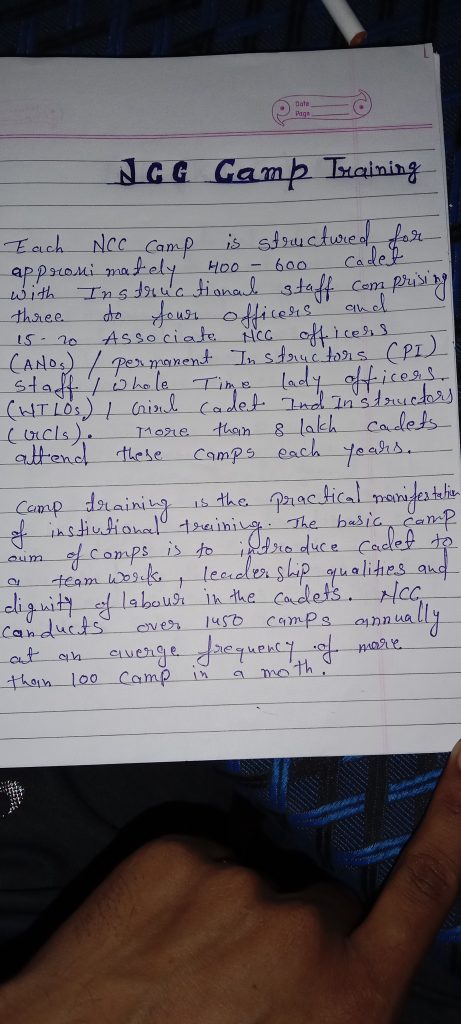 Date
Page
NCC Camp Training
Each NCC Camp is structured for
approxi mately 400 - 600 cadet
with Instruc tional staff comprising
three to four officers and
15-20 Associate NCC officers
(ANOs) / permanent Instructors (PI)
staff / Whole Time lady officers
(WTLOs) / Girl Cadet Ind Instructors
(GCIs). More than 8 lakh cadets
attend these camps each years.
Camp training is the practical manifestation
of instiutional training. The basic camp
aim of camps is to introduce cadet to
a team work, leadership qualities and
dignity of labour in the cadets. NCC
conducts over 1450 camps annually
at an averge frequency of more
than 100 camp in a moth.